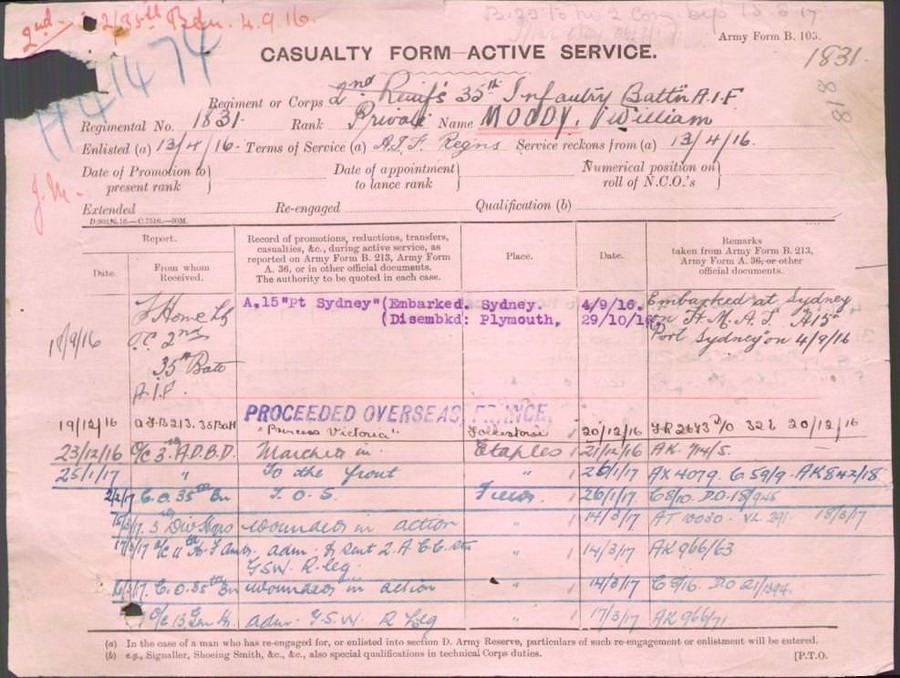 2nd 35th Bdn. 4.9.16.
Army Form B. 103.
CASUALTY FORM—ACTIVE SERVICE.
1831
818
H41474
J.M.
Regiment or Corps 2nd Reinfs 35th Infantry Battn A.I.F
Regimental No. 1831 Rank Private Name MOODY, William
Enlisted (a) 13/4/16. Terms of Service (a) A.I.F. Regns Service reckons from (a) 13/4/16.
Date of Promotion to present rank } Date of appointment to lance rank } Numerical position on roll of N.C.O.'s }
Extended Re-engaged Qualification (b)
Report.
Date.
From whom Received.
Record of promotions, reductions, transfers, casualties, &c., during active service, as reported on Army Form B. 213, Army Form A. 36, or in other official documents. The authority to be quoted in each case.
Place.
Date.
Remarks
taken from Army Form B. 213, Army Form A. 36, or other official documents.
A.15 "Pt Sydney" (Embarked. Sydney. 4/9/16. Embarked at Sydney
(Disembkd: Plymouth, 29/10/16 on H.M.A.T. A15
Port Sydney on 4/9/16
2nd
35th Batt
A.I.F.
PROCEEDED OVERSEAS, FRANCE,
19/12/16 B213. 35 Batt "Princess Victoria" Folkestone 20/12/16 20/12/16
23/12/16 O/C 3rd A.D.B.D. Marched in. Etaples 21/12/16 AK 714/5.
25/1/17 " To the front 26/1/17. AX 4079. AK 842/18
2/2/17 C.O. 35th Bn T.O.S. 26/1/17. C8/10. D.O.
3. Div Hqrs wounded in action " 14/3/17 18/3/17
adm. G.S.W. R. leg. " 14/3/17 AK 966/63
C.O. 35th Bn wounded in action " 14/3/17 C9/16. D.O.
adm. G.S.W. R Leg " 17/3/17 AK 966/71
(a) In the case of a man who has re-engaged for, or enlisted into section D. Army Reserve, particulars of such re-engagement or enlistment will be entered.
(b) e.g., Signaller, Shoeing Smith, &c., &c., also special qualifications in technical Corps duties. [P.T.O.